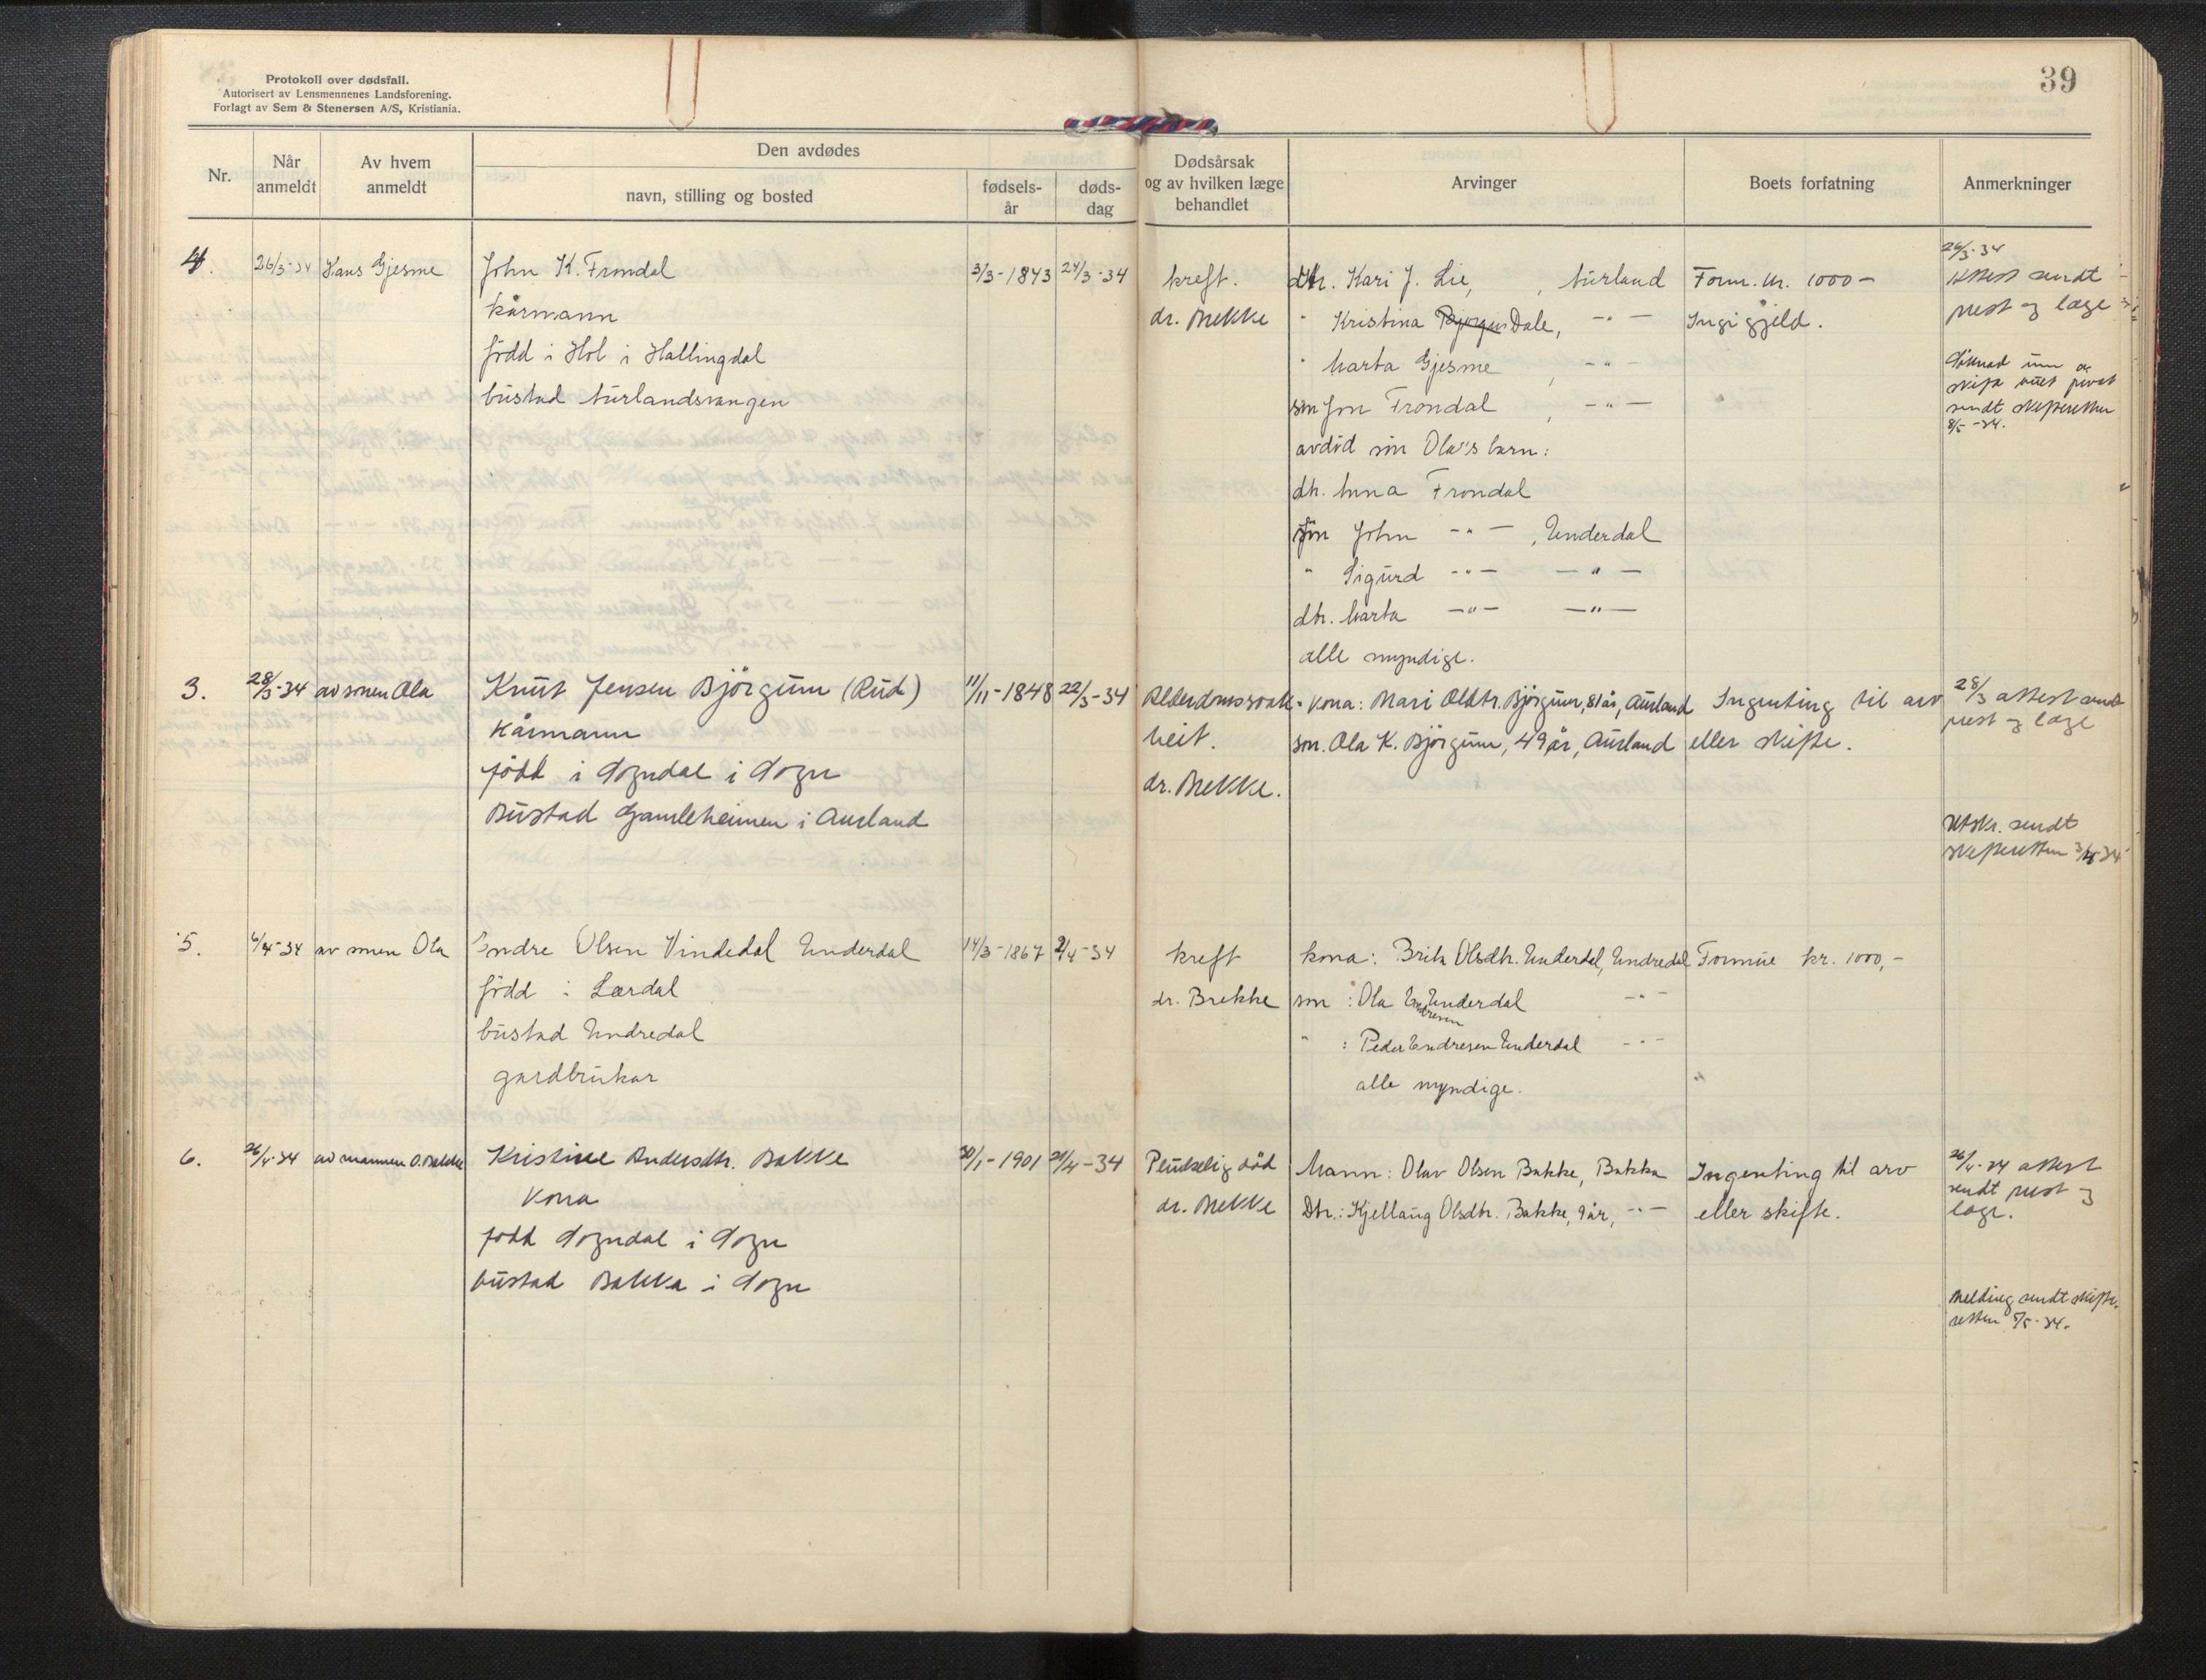 39
Protokoll over dødsfall.
Autorisert av Lensmennenes Landsforening.
Forlagt av Sem & Stenersen A/S, Kristiania.
Nr.
Når anmeldt
Av hvem anmeldt
Den avdødes
navn, stilling og bosted
fødsels-år
døds-dag
Dødsårsak og av hvilken læge behandlet
Arvinger
Boets forfatning
Anmerkninger
4. 26/3-34 Hans Gjesme John K. Frondal 3/3-1843 24/3-34 kreft. dtr. Kari J. Lie, Aurland Form. kr. 1000- 26/3-34
kårmann dr. Brekke " Kristina Bjørgum Dale, -"- Ingi gjeld. Attest sendt
prest og læge
född i Hol i Hallingdal " Marta Gjesme, -"-
bustad Aurlandsvangen son Jon Frondal, -"- sendt skifteretten
8/5-34.
avdöd sön Ola's barn:
dtr. Anna Frondal
sön John -"-, Underdal
" Sigurd -"- -"-
dtr. Marta -"- -"-
alle myndige.
3. 28/3-34 av sonen Ola Knut Jensen Björgum (Rud) 11/11-1848 22/3-34 Alderdomssvak- kona: Mari Olddtr. Björgum, 81 år, Aurland Ingenting til arv 28/3 attest sendt
kårmann heit. son. Ola K. Björgum, 49 år, Aurland eller skifte. prest og læge
född i Sogndal i Sogn dr. Brekke.
Bustad Gamleheimen i Aurland Utskr. sendt
skifteretten 3/4 34
5. 6/4-34 av sonen Ola Endre Olsen Vindedal Underdal 14/3-1867 2/4-34 kreft kona: Brita Olsdtr. Underdal, Undredal Formue kr. 1000,-
född i Lærdal dr. Brekke son : Ola Endresen Underdal -"-
bustad Undredal " : Peder Endresen Underdal -"-
gardbrukar alle myndige.
6. 26/4-34 av mannen O. Bakke Kristine Andersdtr. Bakke 30/1-1901 21/4-34 Plutselig död Mann: Olav Olsen Bakke, Bakka Ingenting til arv 26/4-34 attest
kona dr. Brekke Dtr.: Kjellaug Olsdtr. Bakke, 9 år, -"- eller skifte. sendt prest og
læge.
född Sogndal i Sogn
bustad Bakka i Sogn
Melding sendt skifte-
retten 5/5-34.